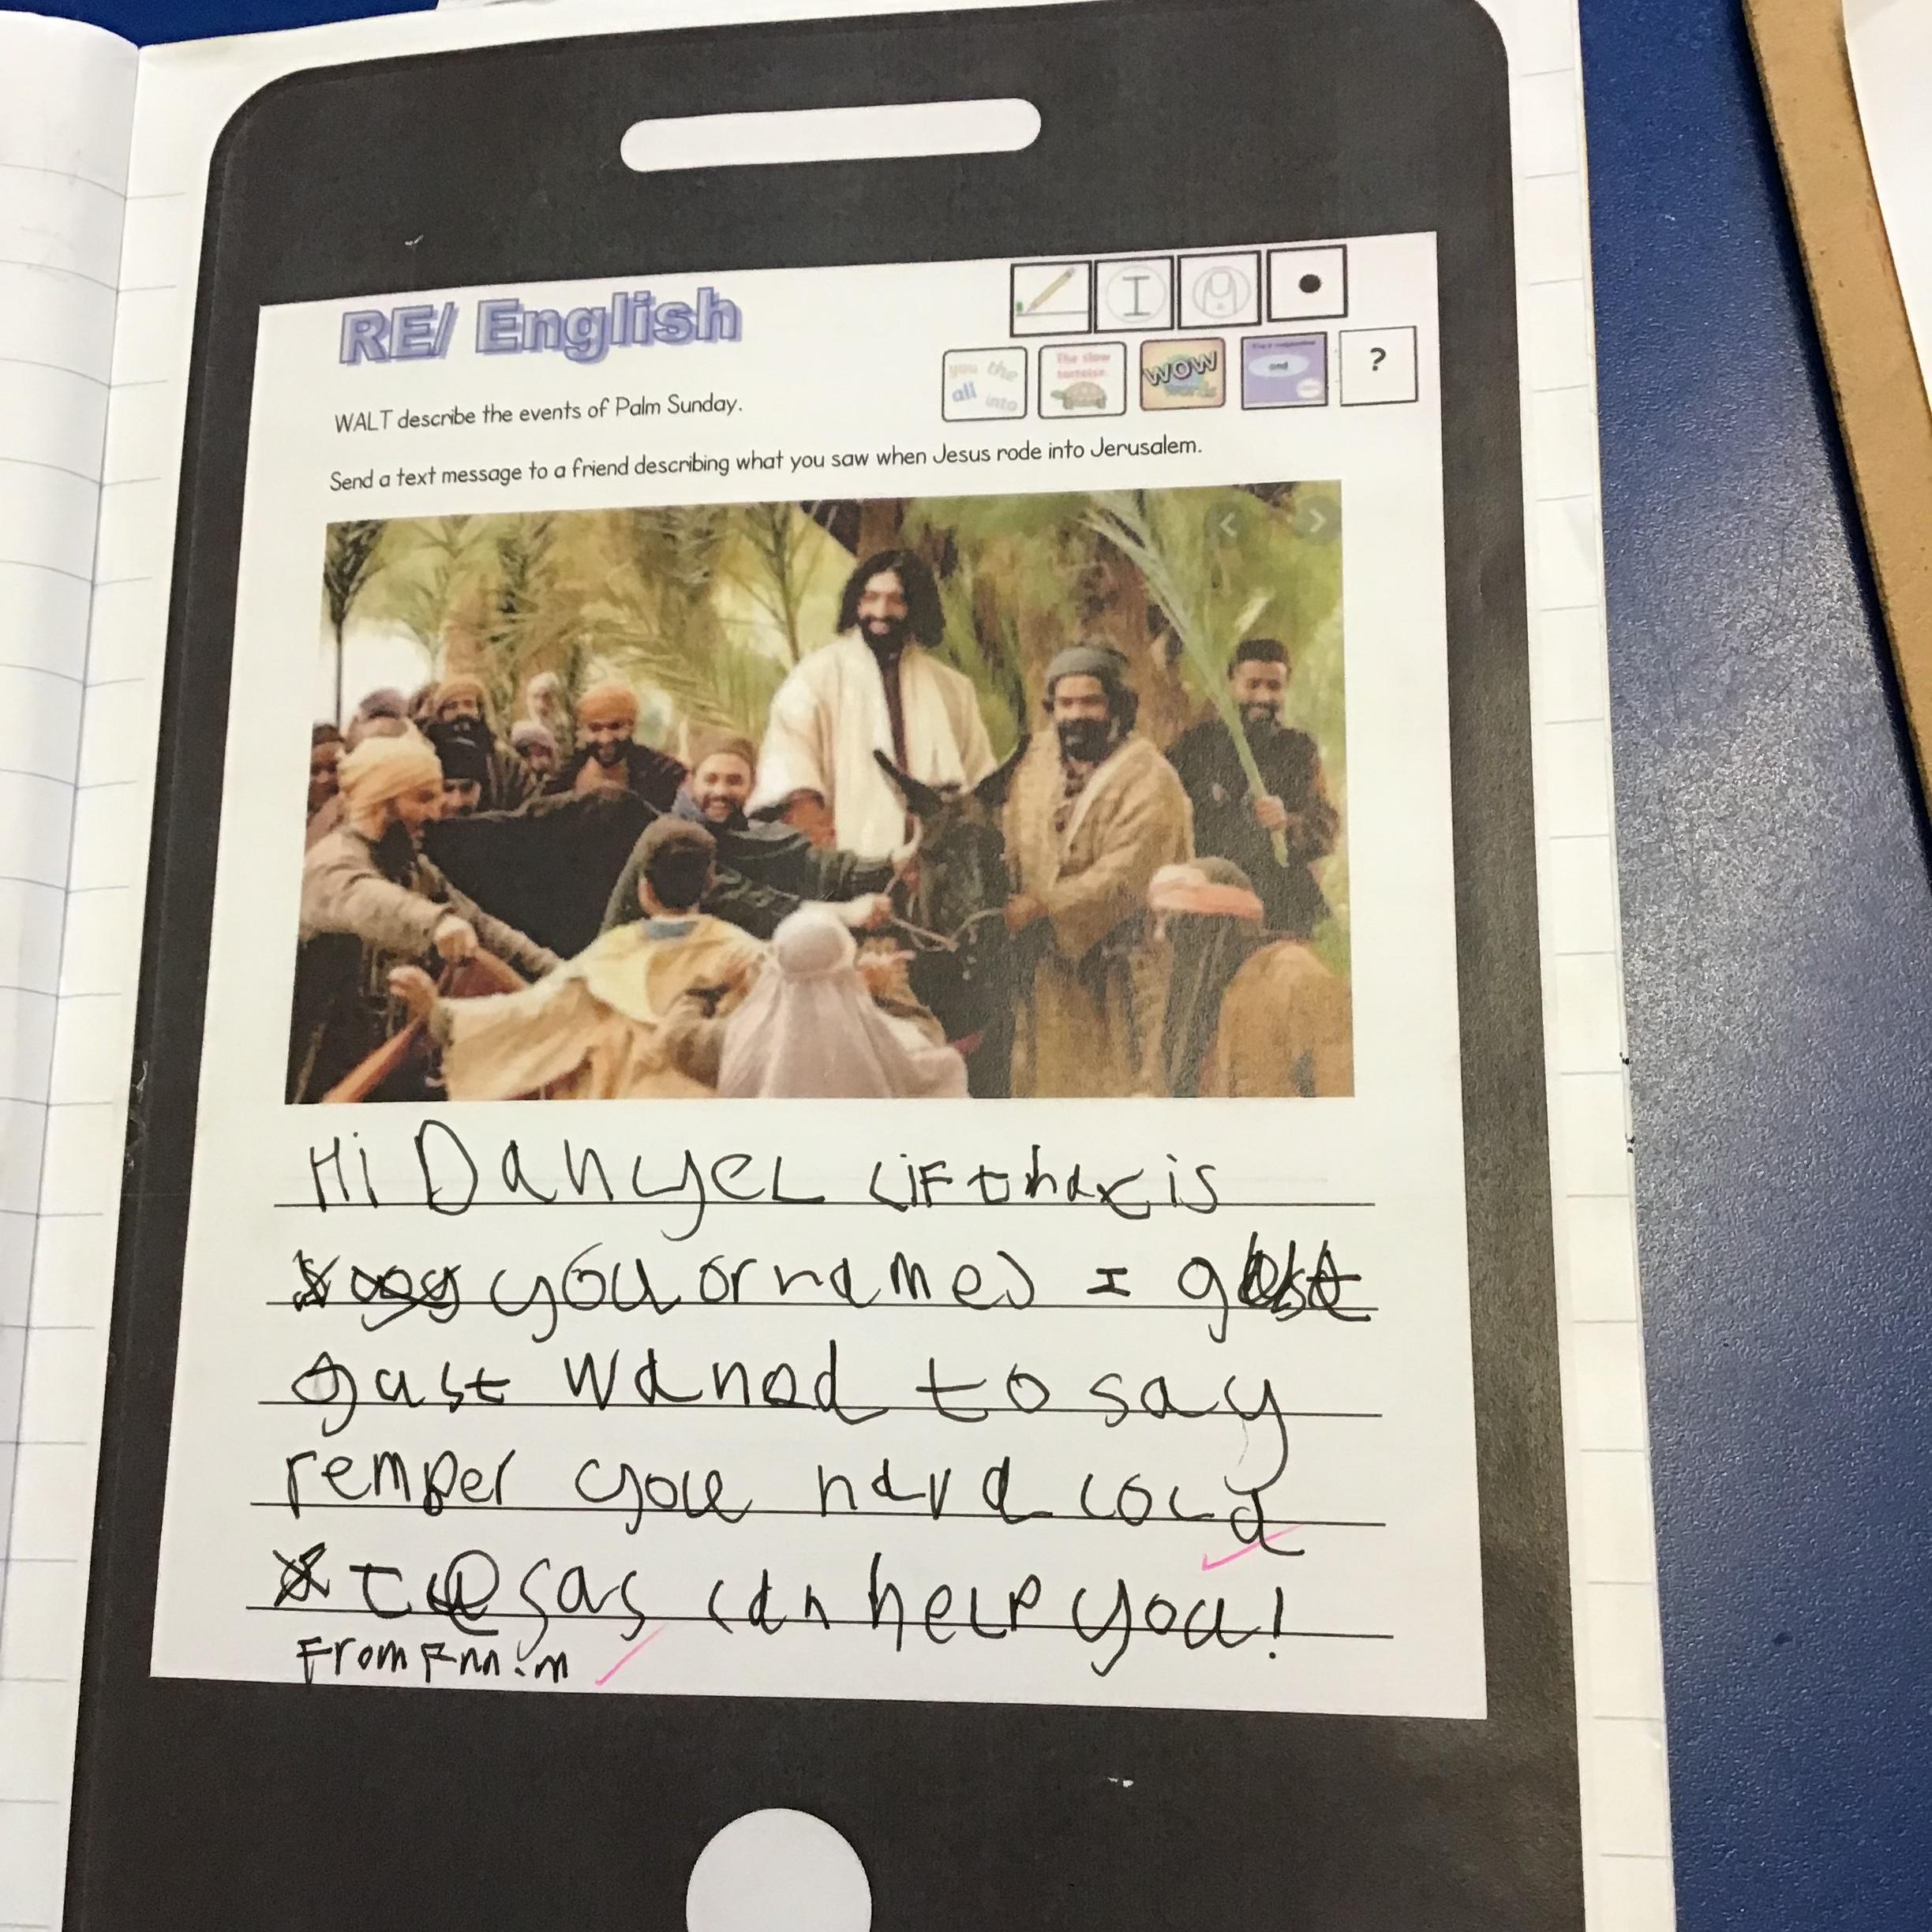 RE/ English
you the all into
The slow tortoise.
WOW words
and
?
WALT describe the events of Palm Sunday.
Send a text message to a friend describing what you saw when Jesus rode into Jerusalem.
Hi Danyel (if thax is
you or name) I
gust wanod to say
remper you hava cold
can help you!
From